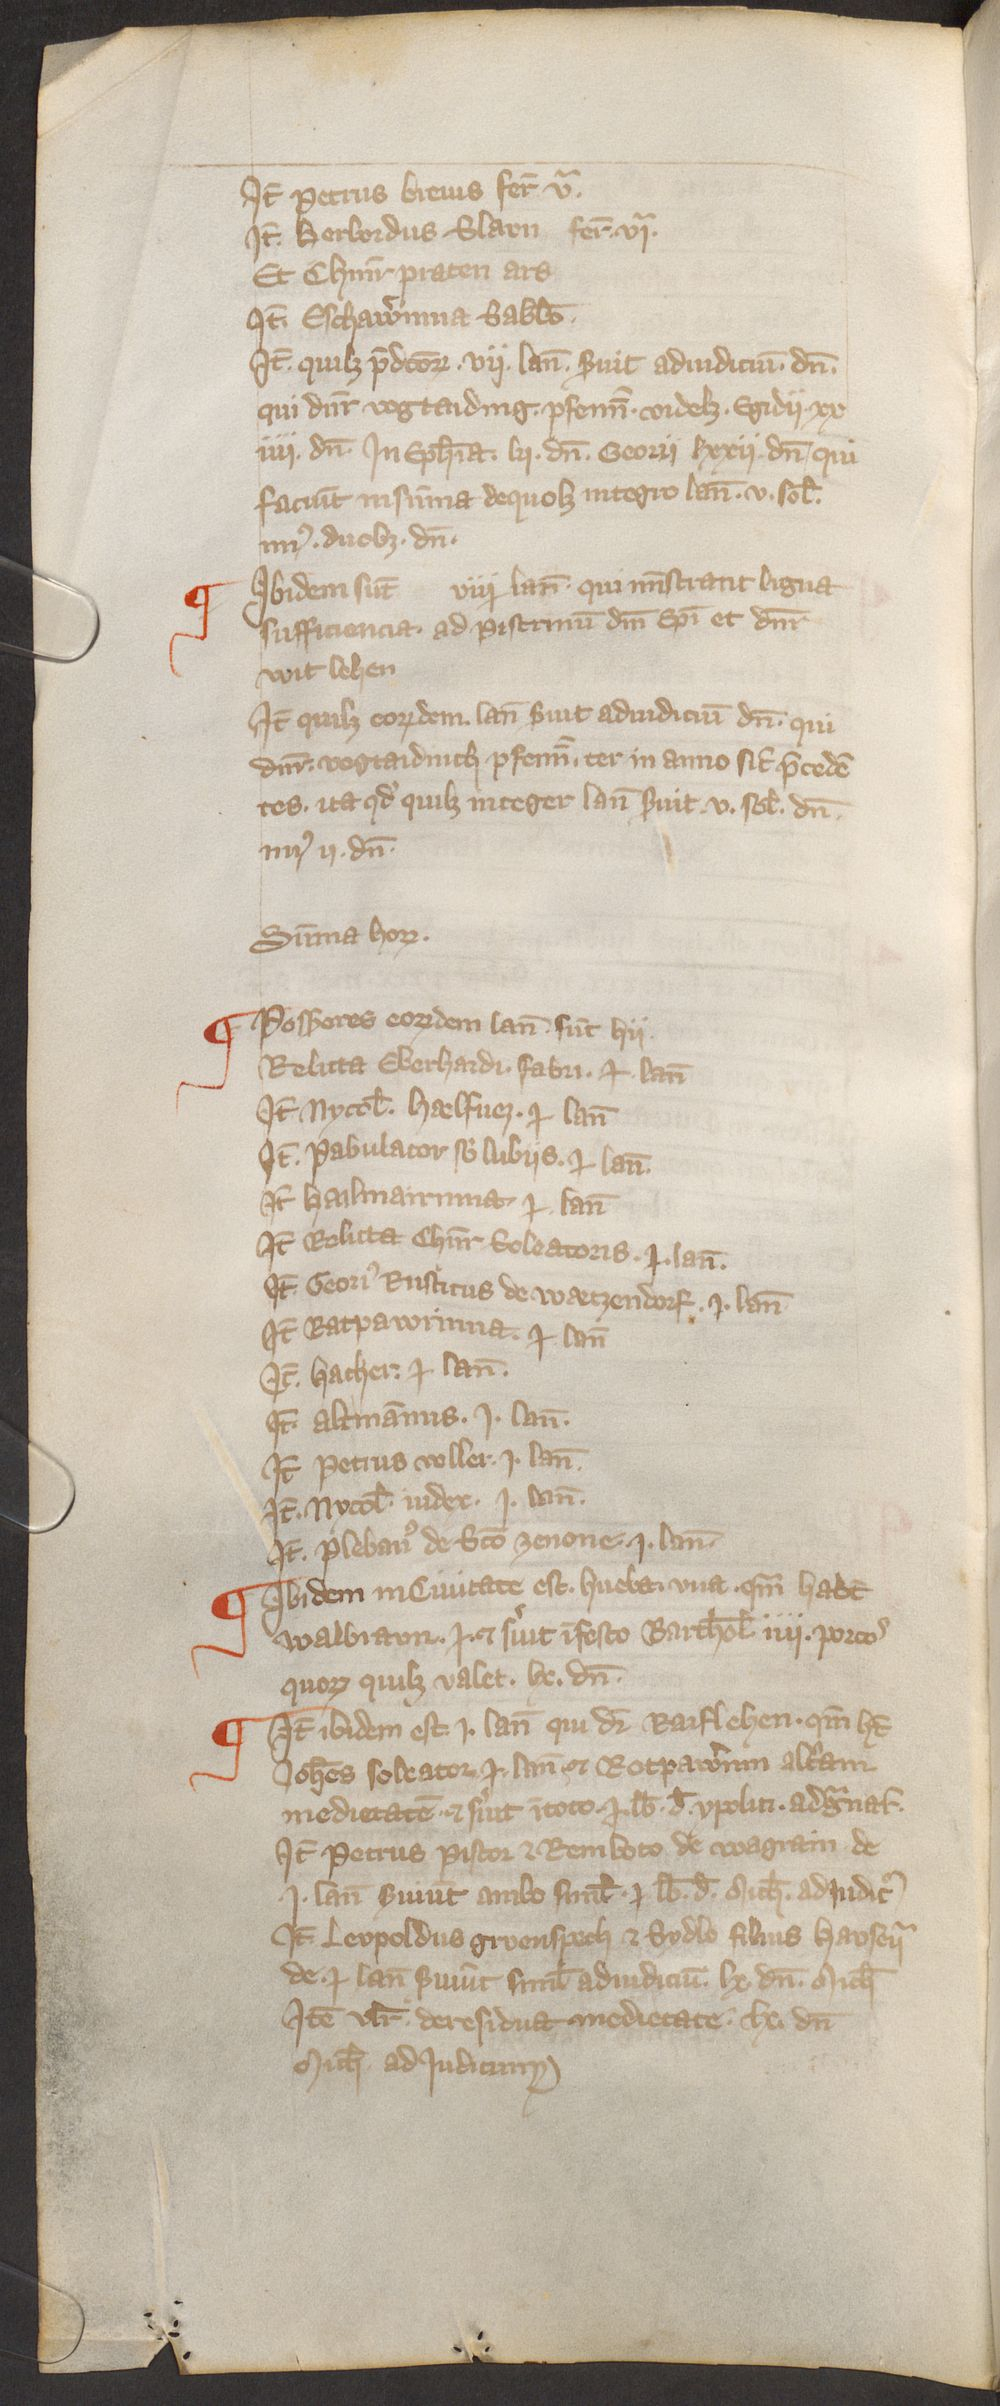 It̄ Petrus breuis fer̄ va.
It̄. Herbordus Slaun fer̄. via.
Et Chunr̄ praten ars
It̄. Eschawrinna Sabbō.
It̄. quilꝫ p̄dc̄oꝝ. vii. lan̄. Seruit ad iudiciū. dn̄.
qui dnr̄ vogtaiding. pfenn̄. videlꝫ. Egidii. xx
iiii. dn̄. In Eph̄ia. lx. dn̄. Georii lxxii. dn̄ qui
faciūt in sūma de quolꝫ integro lan̄. v. sol̄.
miꝰ. duobꝫ. dn̄.
¶ Ibidem sūt viii lan̄. qui mīstrant ligna
sufficiencia. ad pistrinū dn̄i Ep̄i et dnr̄
wit lehen
It̄ quilꝫ eoꝝdem. lan̄ Seruit ad iudiciū dn̄. qui
dnr̄. vogtaidinch pfenn̄. ter in anno sic̄ p̄cedē
tes. ita qd̓ quilꝫ integer lan̄ Seruit. v. sol̄. dn̄.
miꝰ ii. dn̄.
Sūma hoꝝ.
¶ Possessores eoꝝdem lan̄. sūt hii.
Relicta Eberhardi. fabri. ɉ. lan̄
It̄ Nycol̄. Hælfuez. ɉ lan̄
It̄. Pabulator sb̓ lubiis. ɉ lan̄.
It̄ Hailmairinna. ɉ. lan̄
It̄ Relicta Chunr̄ Soleatoris. ɉ. lan̄.
It̄. Georiꝰ Rusticus de Wætzendorf. j. lan̄
It̄ Ratpawrinna. ɉ lan̄
It̄. hacher. ɉ lan̄.
It̄. altmān̄us. j. lan̄.
It̄ Petrus woller. j. lan̄.
It̄. Nycol̄. iudex. j. lan̄.
It̄. plebanꝰ de Sc̄o zenone. j. lan̄.
¶ Ibidem in Ciuitate est. hueba. vna. qm̄ habēt
Walbraun. ɉ. et s̓uit ī festo Barthol̄. iiii. porcoꝰ
quoꝝ quilꝫ valet. lx. dn̄.
¶ It̄ ibidem est. j. lan̄ qui dr̄ Raiflehen. qm̄ hꝫ
Joh̄es soleator. ɉ. lan̄. et Rotpawrinn alt̓am
medietatē. et s̓uit ī toto. ɉ. lb̄. d̄. ypoliti. ad Granar̄.
It̄ Petrus pistor et Remboto de wagrain de
j. lan̄ Seruiūt ambo siml̄. ɉ lb̄. d̄. Mich̄. ad iudiciū
It̄ Leupoldus gruenspech et Sydlo filius Hæuserii
de. ɉ lan̄ Seruiūt siml̄ ad iudiciū. lx. dn̄. Mich̄
Itē vlr̄. de residua medietate. lx. dn̄
Mich̄. ad Judicium